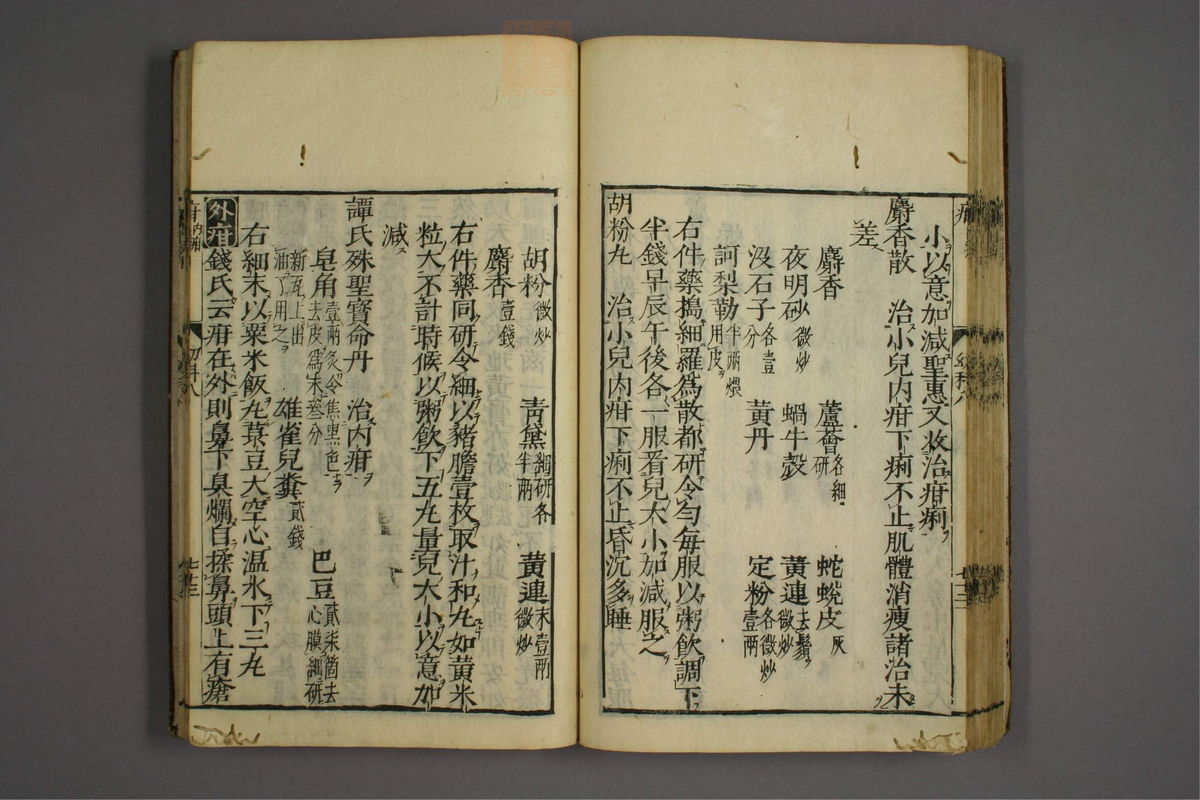 小以意加減聖惠又妝治疳痢
麝香散　治小兒内疳下痢不止肌體消瘦諸治未
差
麝香　蘆薈各細研　蛇蛻皮灰
夜明砂微炒　蝸牛殼　黃連去鬚微炒
沒石子各壹分　黃丹　定粉各微炒壹兩
訶梨勒半兩煨用皮
右件藥搗細羅爲散都研令勻每服以粥飲調下
半錢早辰午後各一服看兒大小加減服之
胡粉丸　治小兒内疳下痢不止昏沉多睡
胡粉微炒　青黛細研各半兩　黃連末壹兩微炒
麝香壹錢
右件藥同研令細以豬膽壹枚取汁和丸如黃米
粒大不計時候以粥飲下五丸量兒大小以意加
減
譚氏殊聖寶命丹　治内疳
皂角壹兩炙令焦黑色去皮爲末叄分　巴豆貳柒箇去心膜細研
新瓦上出油了用之　雄雀兒糞貳錢
右細末以粟米飯丸菉豆大空心温水下三丸
外疳錢氏云疳在外則鼻下臭爛自揉鼻頭上有瘡